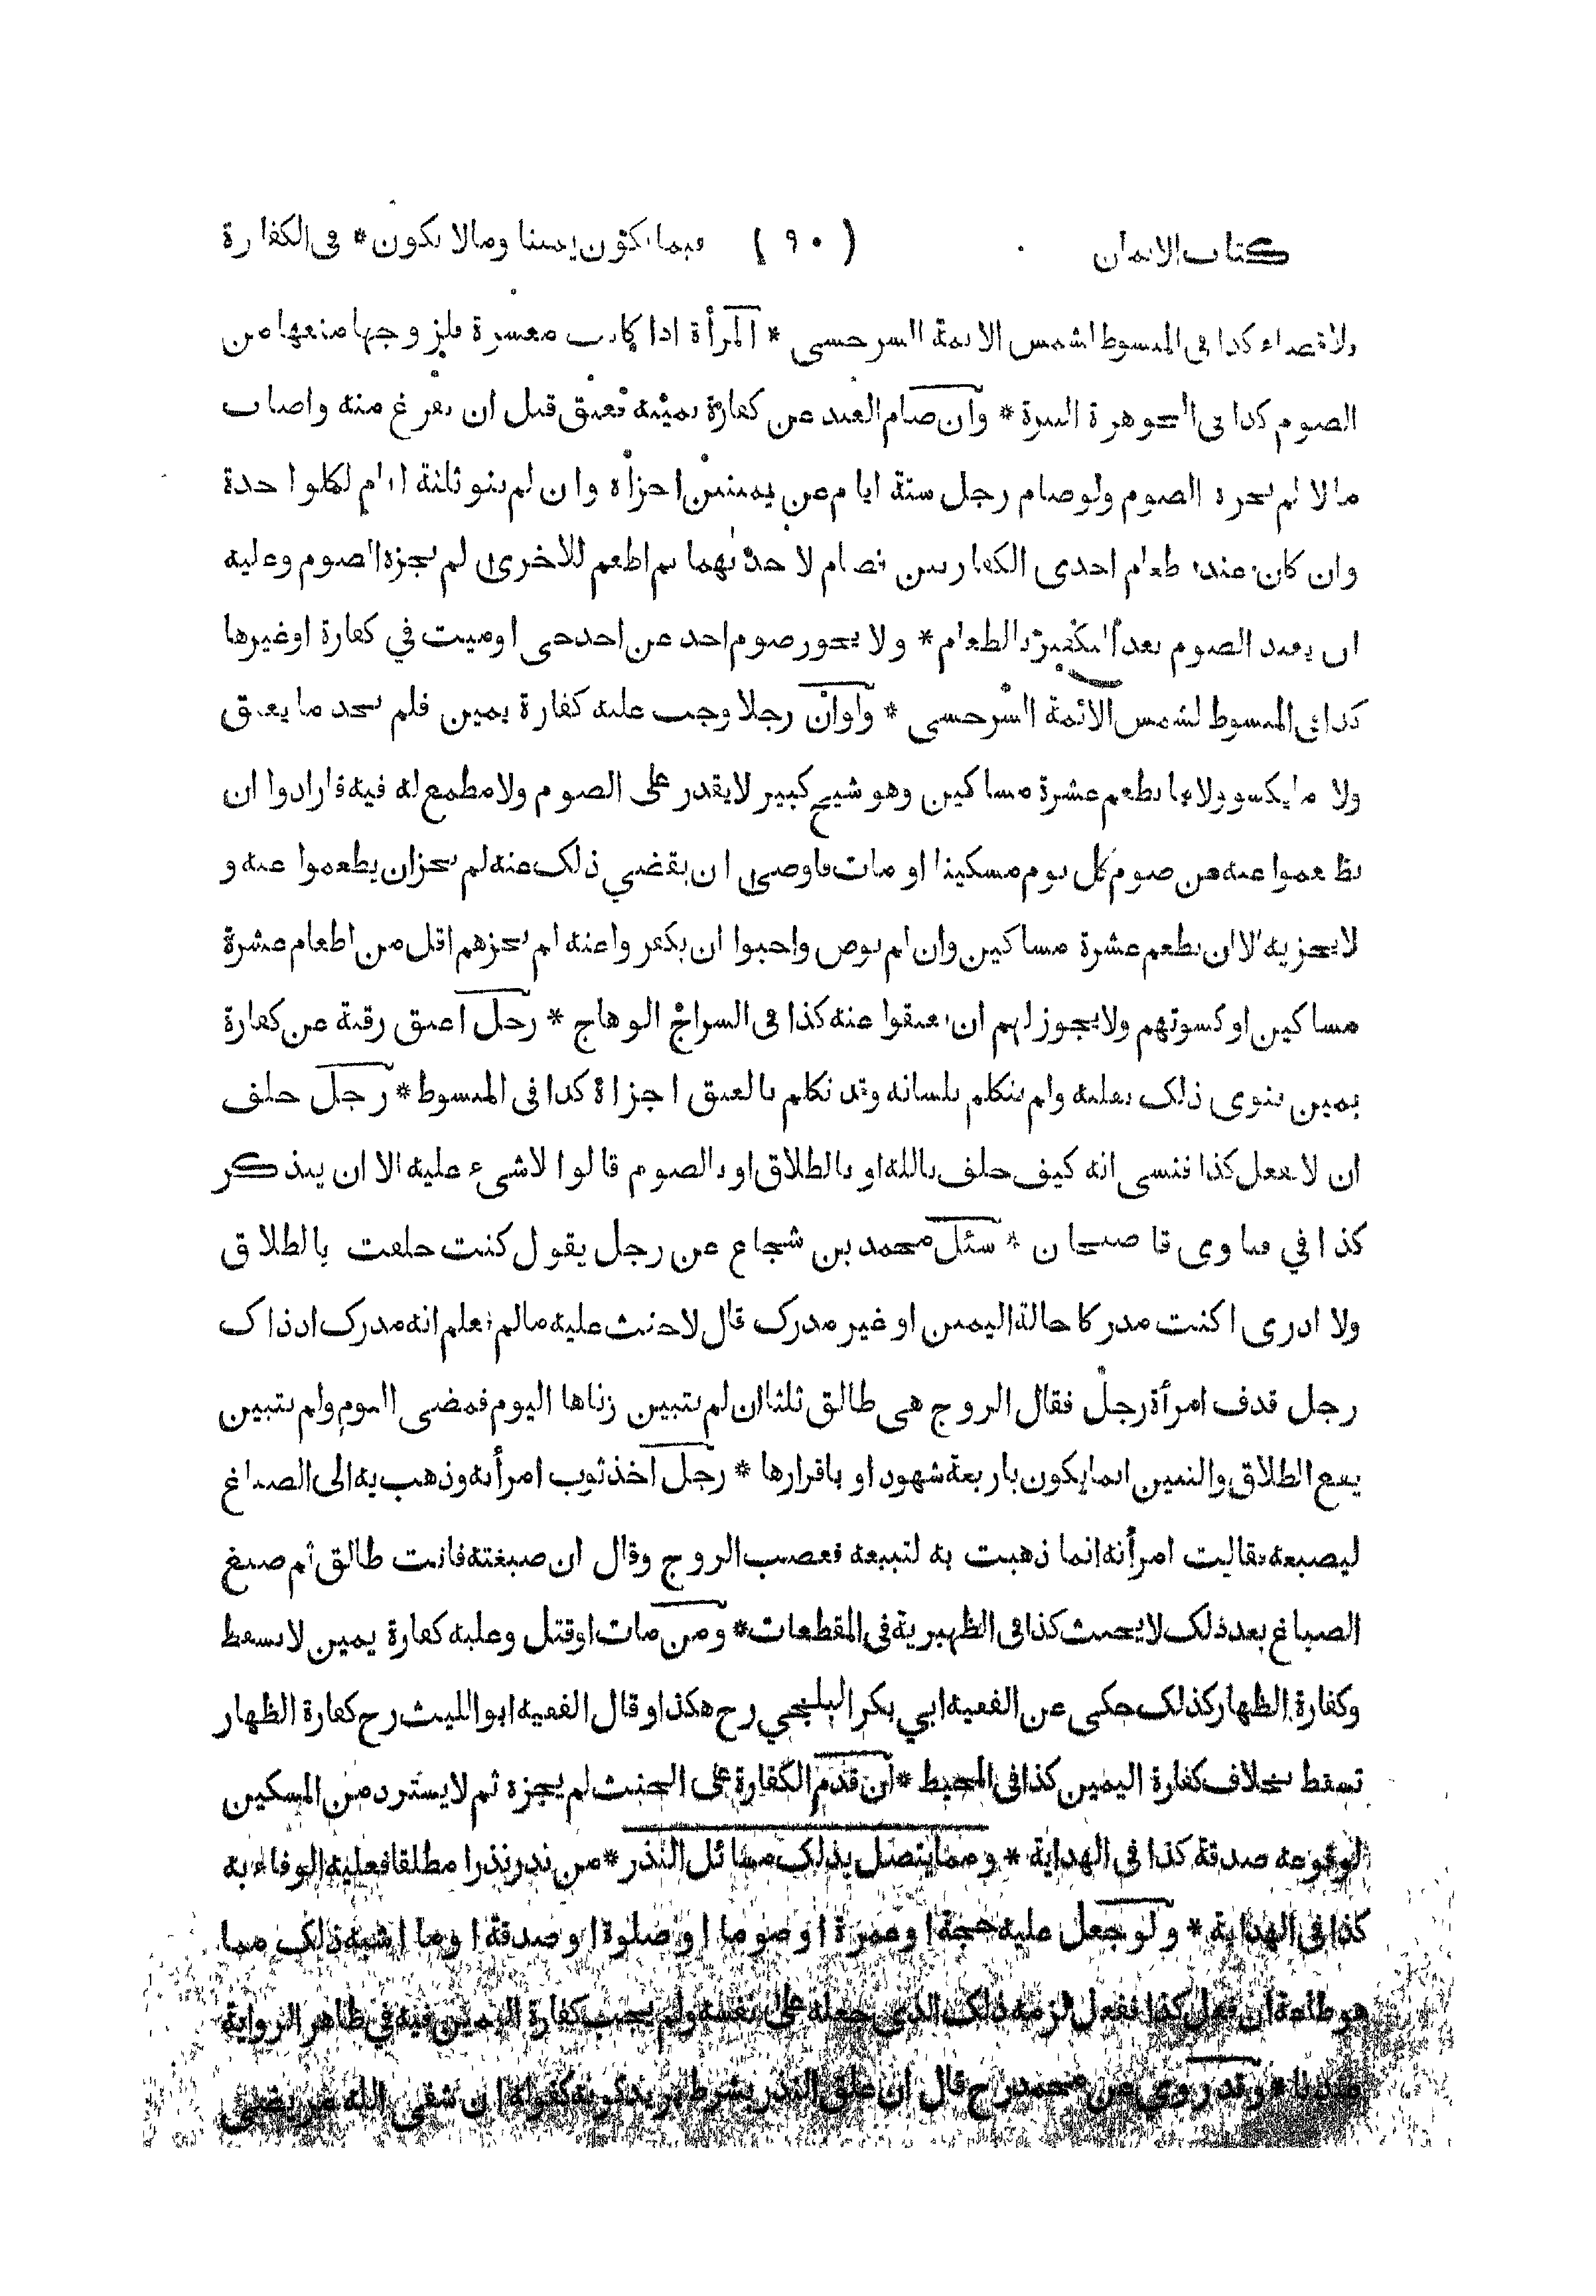 كتاب الايمان ( ٩٠ ) فيما يكون يمينا وما لا يكون * في الكفارة
ولا قضاء كذا في المبسوط لشمس الائمة السرخسي * المرأة اذا كانت معسرة فلزوجها منعها من
الصوم كذا في الجوهرة النيرة * وان صام العبد عن كفارة يمينه فعتق قبل ان يفرغ منه واصاب
مالا لم يجزه الصوم ولو صام رجل ستة ايام عن يمينين اجزاه وان لم ينو ثلثة ايام لكل واحدة
وان كان عنده طعام احدى الكفارتين فصام لاحدٰهما ثم اطعم للاخرى لم يجزه الصوم وعليه
ان يعيد الصوم بعد التكفير بالطعام * ولا يجوز صوم احد عن احد حى او ميت في كفارة او غيرها
كذا في المبسوط لشمس الائمة السرخسي * ولو ان رجلا وجب عليه كفارة يمين فلم يجد ما يعتق
ولا ما يكسو ولا ما يطعم عشرة مساكين وهو شيخ كبير لا يقدر على الصوم ولا مطمع له فيه فارادوا ان
يطعموا عنه عن صوم كل يوم مسكينا او مات فاوصى ان يقضي ذلك عنه لم يجز ان يطعموا عنه و
لا يجزيه الا ان يطعم عشرة مساكين وان لم يوص واحبوا ان يكفروا عنه لم يجزهم اقل من اطعام عشرة
مساكين او كسوتهم ولا يجوز لهم ان يعتقوا عنه كذا في السراج الوهاج * رجل اعتق رقبة عن كفارة
يمين ينوى ذلك بقلبه ولم يتكلم بلسانه وقد تكلم بالعتق اجزاه كذا في المبسوط * رجل حلف
ان لا يفعل كذا فنسى انه كيف حلف بالله او بالطلاق او بالصوم قالوا لا شىء عليه الا ان يتذكر
كذا في فتاوى قاضيخان * سئل محمد بن شجاع عن رجل يقول كنت حلفت بالطلاق
ولا ادرى اكنت مدركا حالة اليمين او غير مدرك قال لا حنث عليه ما لم يعلم انه مدرك اذ ذاك
رجل قذف امرأة رجل فقال الزوج هى طالق ثلثا ان لم يتبين زناها اليوم فمضى اليوم ولم يتبين
يقع الطلاق والتبين انما يكون باربعة شهود او باقرارها * رجل اخذ ثوب امرأته وذهب به الى الصباغ
ليصبغه فقالت امرأته انما ذهبت به لتبيعه فغضب الزوج وقال ان صبغته فانت طالق ثم صبغ
الصباغ بعد ذلك لا يحنث كذا في الظهيرية في المقطعات * ومن مات او قتل وعليه كفارة يمين لا تسقط
وكفارة الظهار كذلك حكى عن الفقيه ابي بكر البلخي رح هكذا وقال الفقيه ابو الليث رح كفارة الظهار
تسقط بخلاف كفارة اليمين كذا في المحيط * ان قدم الكفارة على الحنث لم يجزه ثم لا يسترد من المسكين
لوقوعه صدقة كذا في الهداية * ومما يتصل بذلك مسائل النذر * من نذر نذرا مطلقا فعليه الوفاء به
كذا في الهداية * ولو جعل عليه حجة او عمرة او صوما او صلوة او صدقة او ما اشبه ذلك مما
هو طاعة ان فعل كذا ففعل لزمه ذلك الذى جعله على نفسه ولم يجب كفارة اليمين فيه في ظاهر الرواية
عندنا * وقد روي عن محمد رح قال ان علق النذر بشرط يريد كونه كقوله ان شفى الله مريضي